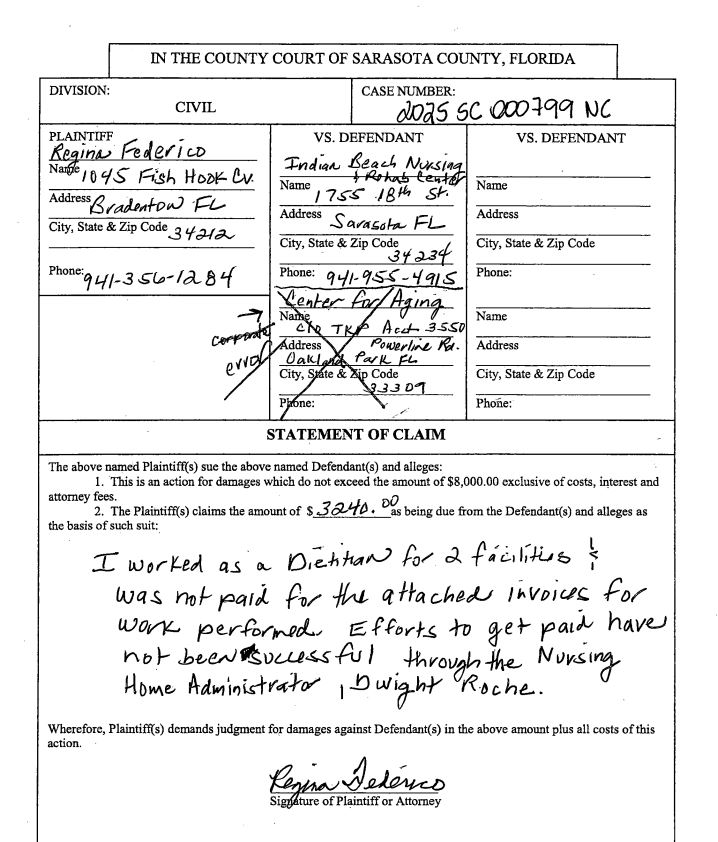 IN THE COUNTY COURT OF SARASOTA COUNTY, FLORIDA
DIVISION:
CIVIL
CASE NUMBER:
2025 SC 000799 NC
PLAINTIFF
Regina Federico
Name 1045 Fish Hook Cv.
Address Bradenton FL
City, State & Zip Code 34212
Phone: 941-356-1284
VS. DEFENDANT
Indian Beach Nursing
& Rehab Center
Name 1755 18th St.
Address Sarasota FL
City, State & Zip Code 34234
Phone: 941-955-4915
Center for Aging
Name c/o TKP Acct 3550
Address Powerline Rd.
Oakland Park FL
City, State & Zip Code
33309
Phone:
corporate
error
VS. DEFENDANT
Name
Address
City, State & Zip Code
Phone:
Name
Address
City, State & Zip Code
Phone:
STATEMENT OF CLAIM
The above named Plaintiff(s) sue the above named Defendant(s) and alleges:
1. This is an action for damages which do not exceed the amount of $8,000.00 exclusive of costs, interest and
attorney fees.
2. The Plaintiff(s) claims the amount of $ 3240.00 as being due from the Defendant(s) and alleges as
the basis of such suit:
I worked as a Dietitian for 2 facilities &
was not paid for the attached invoices for
work performed. Efforts to get paid have
not been successful through the Nursing
Home Administrator, Dwight Roche.
Wherefore, Plaintiff(s) demands judgment for damages against Defendant(s) in the above amount plus all costs of this
action.
Regina Federico
Signature of Plaintiff or Attorney